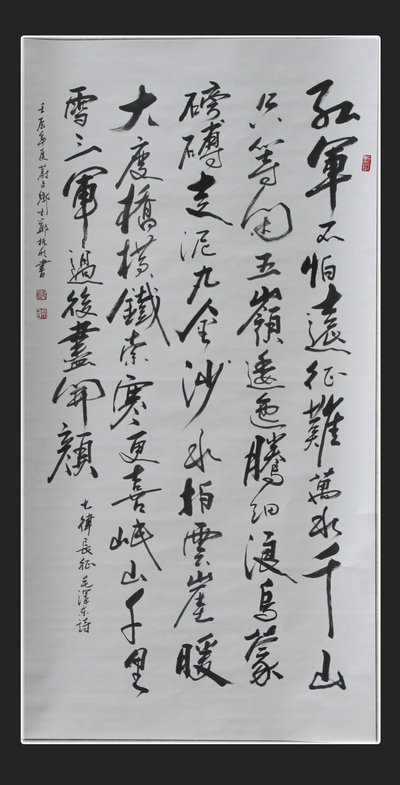 红軍不怕遠征難萬水千山
只等閑五嶺逶迤騰细浪烏蒙
磅礴走泥丸金沙水拍雲崖暖
大度橋横鐵索寒更喜岷山千里
雪三軍過後盡開顔
七律長征 毛澤东詩
壬辰年夏 書